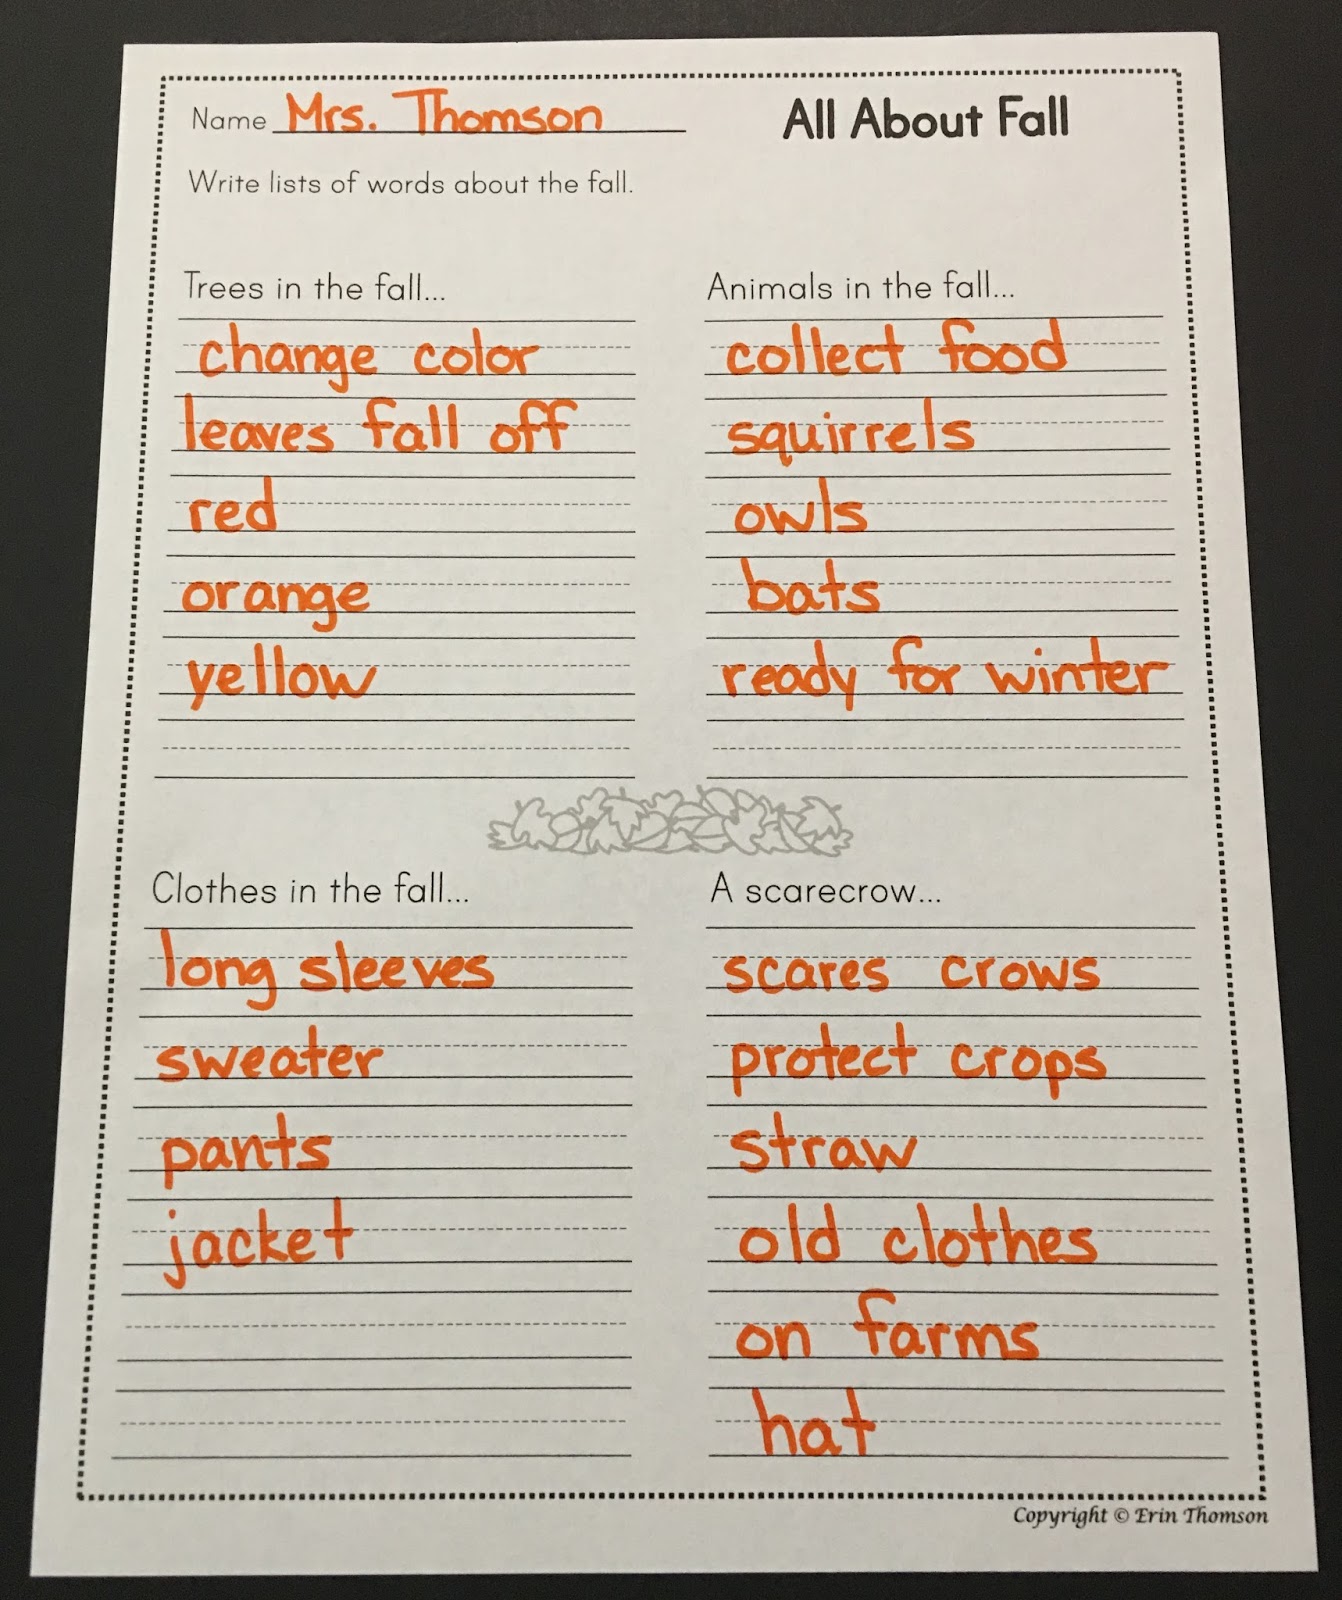 Name Mrs. Thomson
All About Fall
Write lists of words about the fall.
Trees in the fall...
change color
leaves fall off
red
orange
yellow
Animals in the fall...
collect food
squirrels
owls
bats
ready for winter
Clothes in the fall...
long sleeves
sweater
pants
jacket
A scarecrow...
scares crows
protect crops
straw
old clothes
on farms
hat
Copyright © Erin Thomson